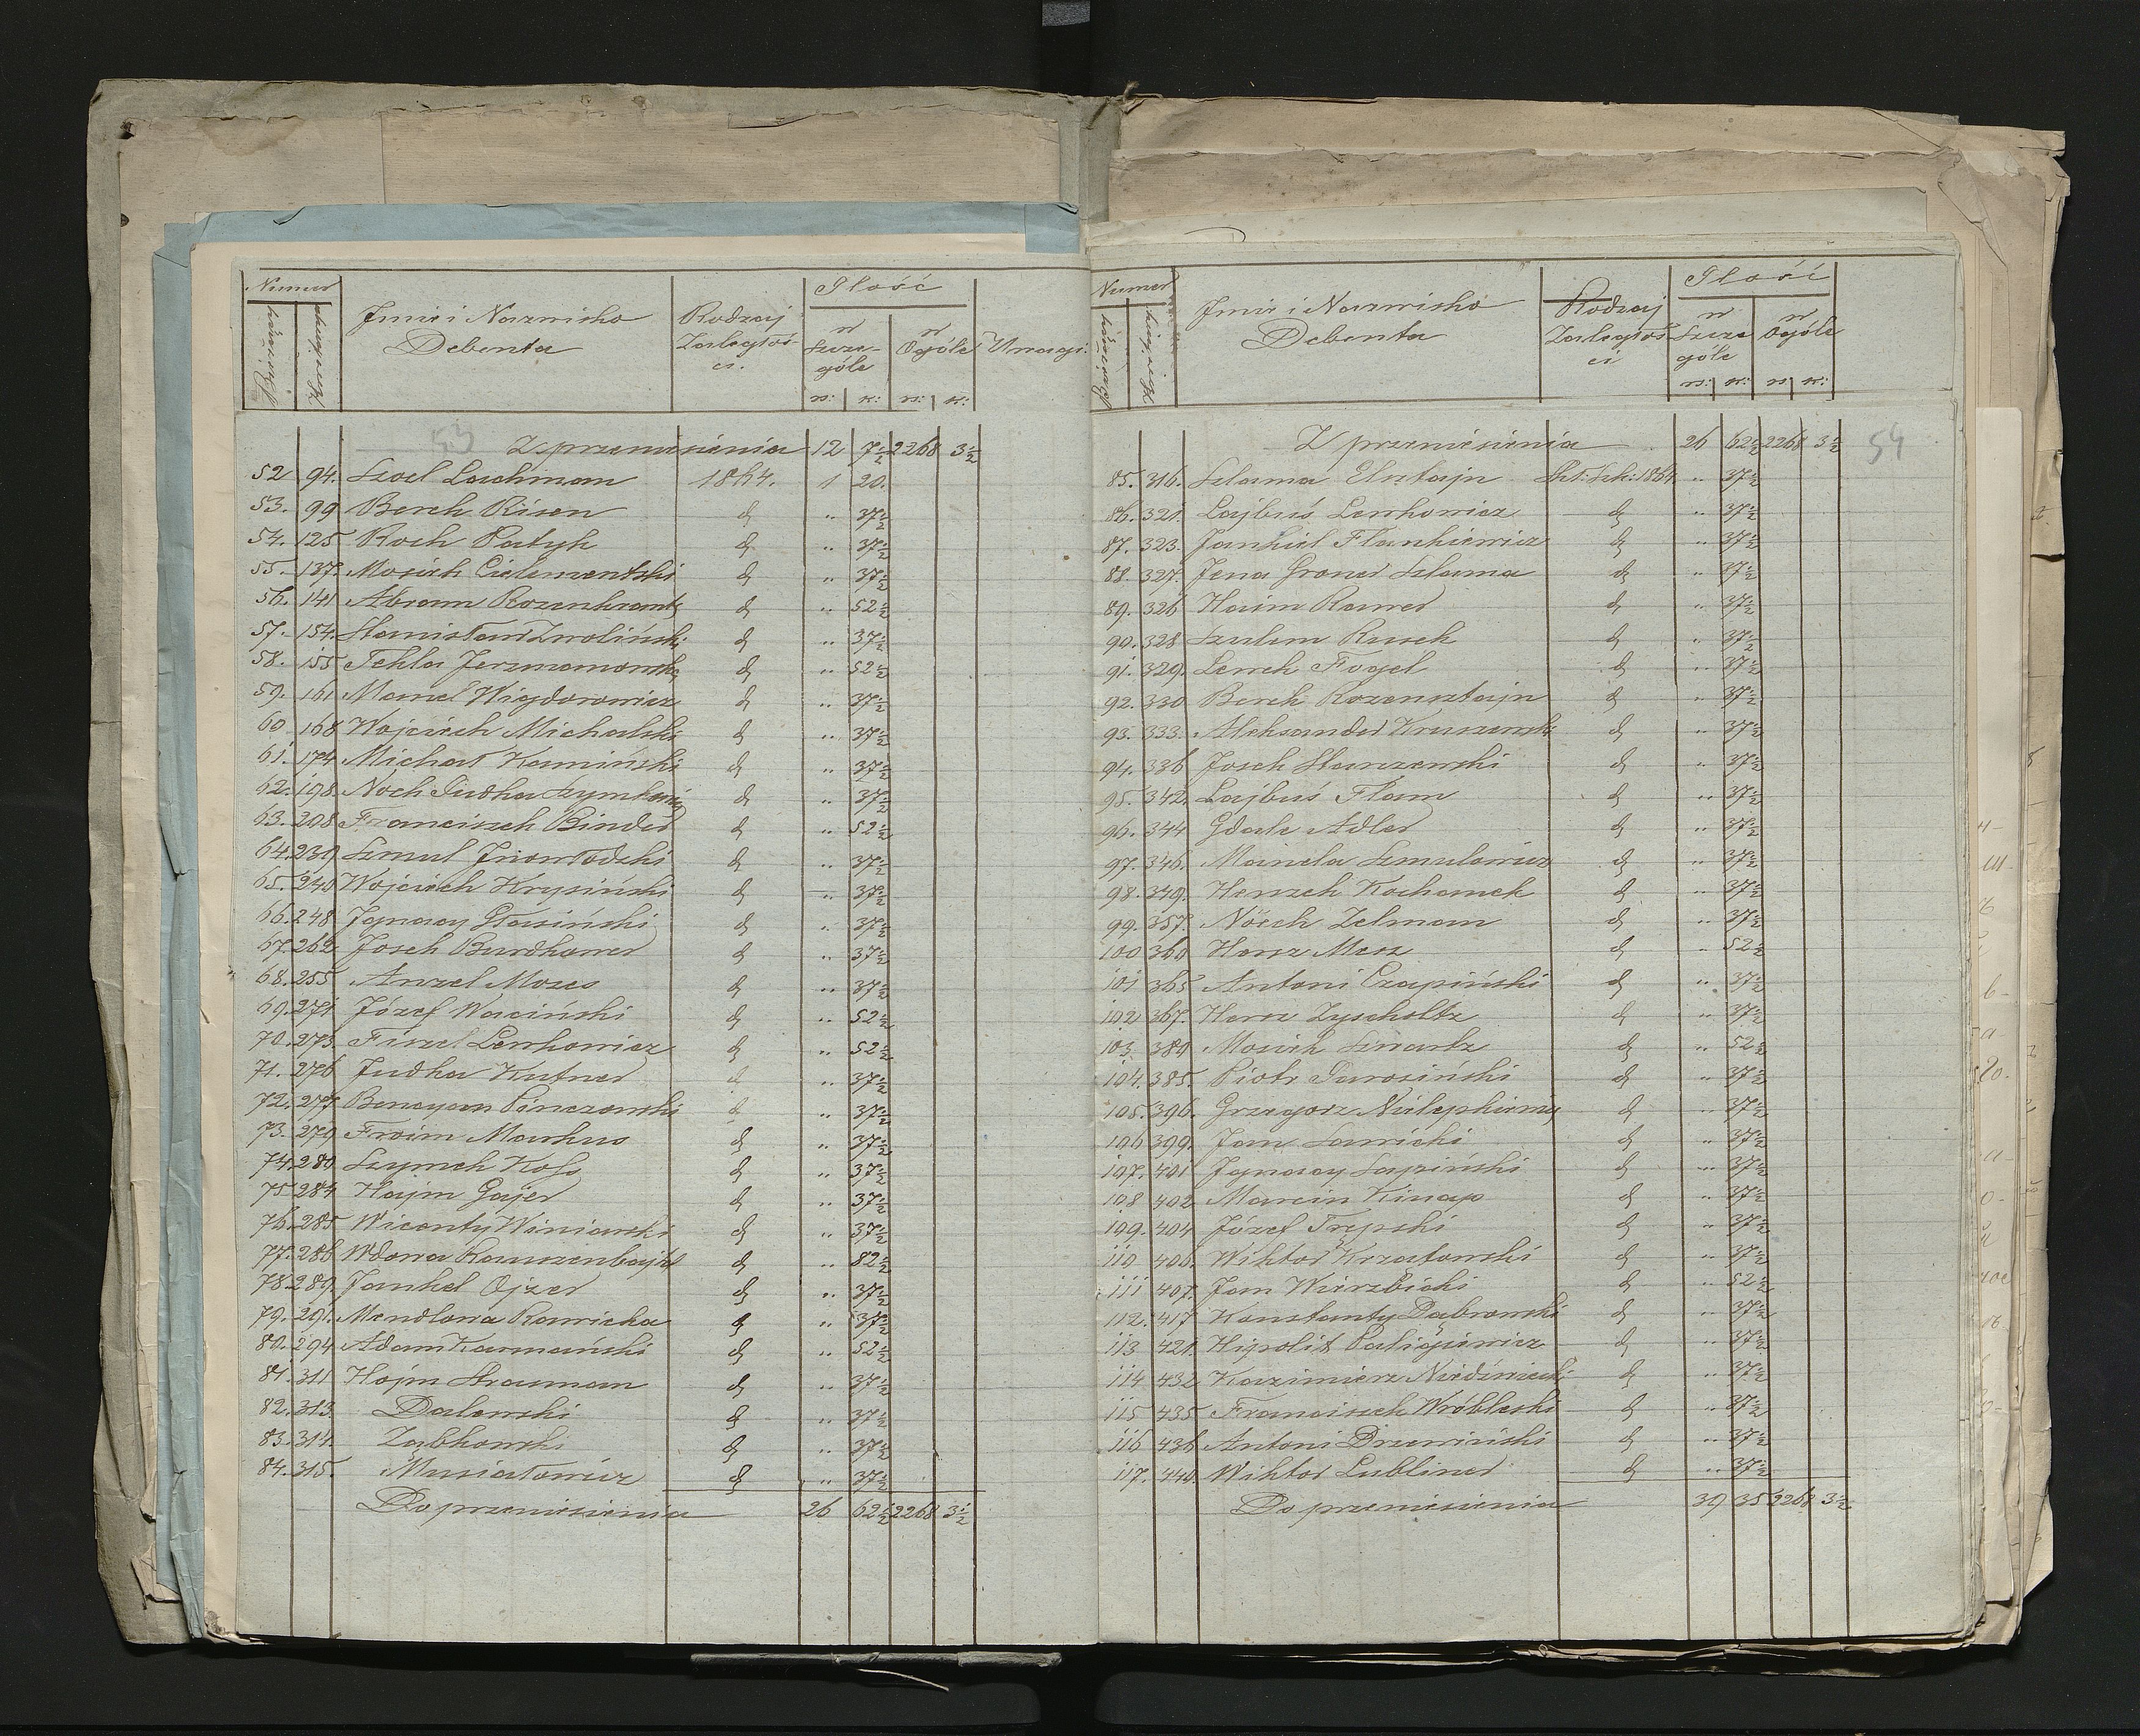 Numer
Imie i Nazwisko
Debenta
Rodzaj
Zaległoś-
ci.
Ilość
w
Szcze-
góle
w
Ogóle
Uwagi.
rs: k: rs: k:
53
Z przeniesienia 12 7½ 2268 3½
52 94. Szoel Laschman 1864. 1 20.
53. 99 Berek Risen d „ 37½
54. 125 Roch Patyk d „ 37½
55. 137. Mosiek d „ 37½
56. 141 Abram Rozenkrantz d „ 52½
57. 154. Stanisław Zwoliński d „ 37½
58. 155 Tekla Jerzmanowska d „ 52½
59. 161 Manel Wigdorowicz d „ 37½
60 168 Wojciech Michalski d „ 37½
61. 174 Michał Kamiński d „ 37½
62. 198. Noch Judka d „ 37½
63. 208 Franciszek Binder d „ 52½
64. 239 Szmul Inowłodzki d „ 37½
65. 240 Wojciech Krysiński d „ 37½
66. 248 Ignacy Głasiński d „ 37½
67. 262 Josek d „ 37½
68. 255 Anzel Mozes d „ 37½
69. 271 Józef Waciński d „ 52½
70. 273. Fiszel Lewkowicz d „ 52½
71. 276 Judka Kutner d „ 37½
72. 277 Pinczewski d „ 37½
73. 279 Froim Markus d „ 37½
74. 280 Szymek d „ 37½
75 284 Hajm Gajer d „ 37½
76. 285 Wicenty Winiarski d „ 37½
77. 286 Wdowa d „ 82½
78. 289. Jankel Ojzer d „ 37½
79. 291. Mendlowa Rawicka d „ 37½
80. 294 Adam Karmański d „ 52½
81. 311 Hajm Strauman d „ 37½
82. 313. Dalewski d „ 37½
83. 314. Ząbkowski d „ 37½
84. 315. Musiałowicz d „ 37½
Do przeniesienia 26 62½ 2268 3½
Numer
Imie i Nazwisko
Debenta
Rodzaj
Zaległoś
ci
Ilość
w
Szcze
góle
w
Ogóle
rs: k: rs: k:
Z przeniesienia 26 62½ 2268 3½
54
85. 316. Szlama Elsztajn Skł: Szk: 1864 „ 37½
86. 321. Lajbuś Lewkowicz d „ 37½
87. 323. Jankiel d „ 37½
88. 327. Jena Groner Szlama d „ 37½
89. 326 Haim Rawer d „ 37½
90. 328 Szulim Rusek d „ 37½
91. 329. Lewek Fogel d „ 37½
92. 330 Berek Rozensztajn d „ 37½
93. 333. Aleksander Kruszewski d „ 37½
94. 336 Josek d „ 37½
95. 342. Lajbuś Flam d „ 37½
96. 344 Gdale Adler d „ 37½
97. 346. Majnela Szmulowicz d „ 37½
98. 349. Henzek Kochanek d „ 37½
99. 357. Nöech Zelman d „ 37½
100 360 Hersz d „ 52½
101 365 Antoni Czapiński d „ 37½
102 367. Hersz Zyscholtz d „ 37½
103. 380 Mosiek Szwartz d „ 52½
104. 385. Piotr Garosiński d „ 37½
105. 396. Grzegorz d „ 37½
106 399. Jan Sawicki d „ 37½
107. 401 Ignacy Sapiński d „ 37½
108 402 Marcin Knap d „ 37½
109. 404 Józef Trępski d „ 37½
110 406. Wiktor d „ 37½
111 407. Jan Wierzbicki d „ 52½
112. 417 Konstanty Dąbrowski d „ 37½
113 421. Hipolit d „ 37½
114 432 Kazimierz d „ 37½
115 435. Franciszek Wróbleski d „ 37½
116 436 Antoni Drzewiński d „ 37½
117. 440. Wiktor Lubliner d „ 37½
Do przeniesienia 39 35 2268 3½